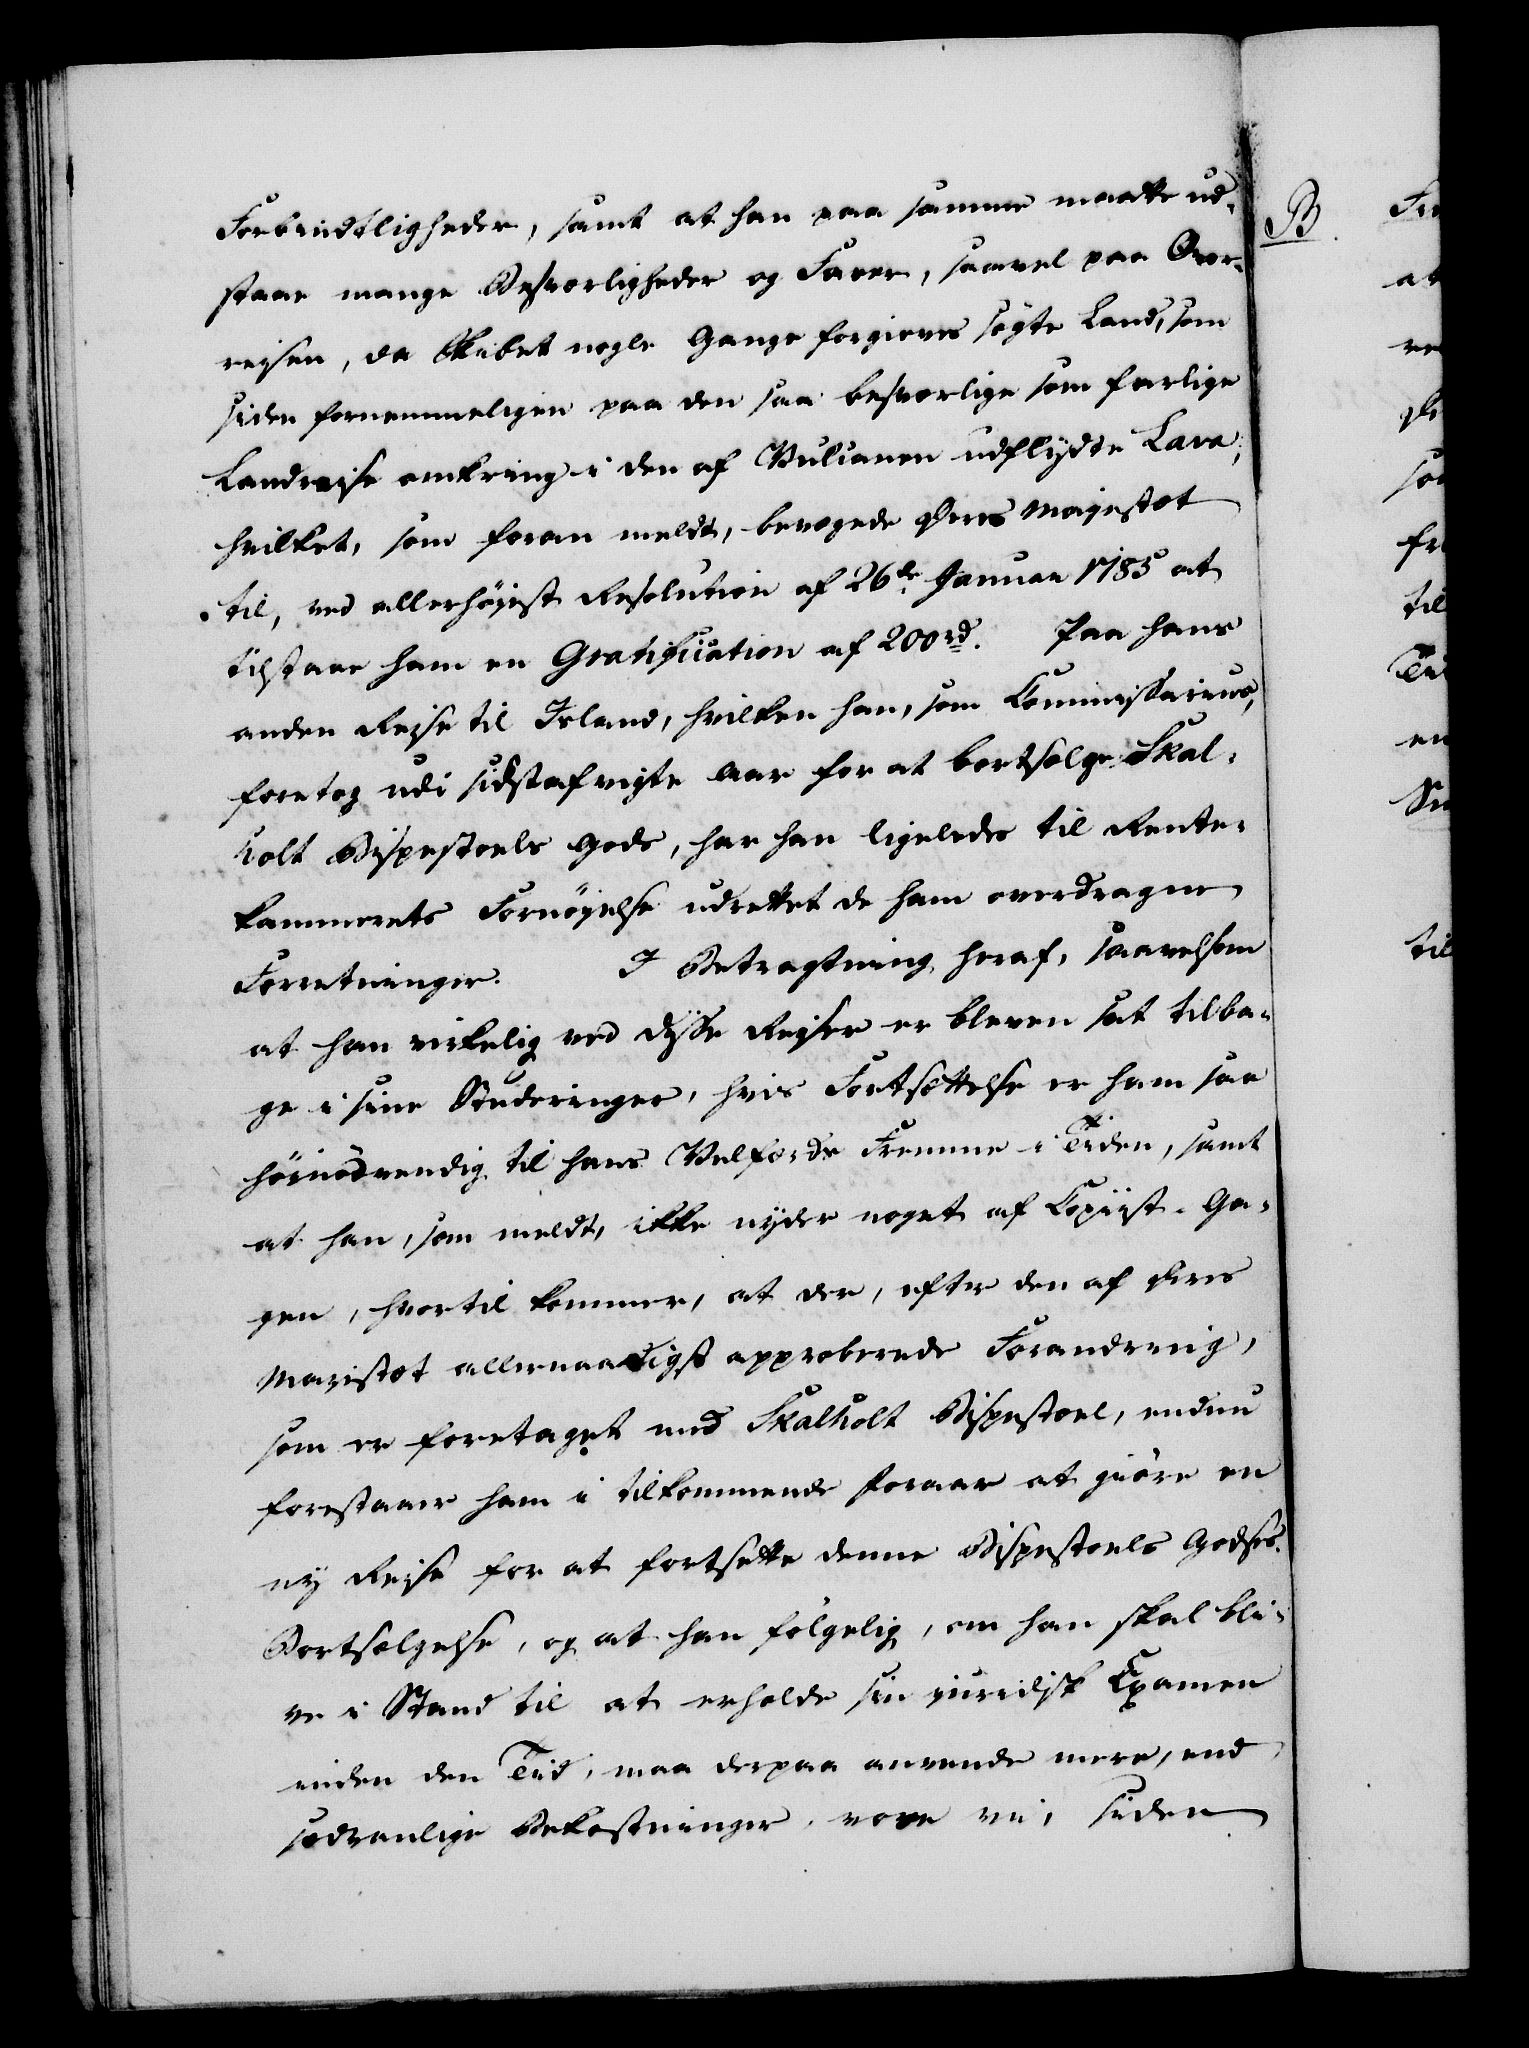 Forbindtligheder, samt at han paa samme maatte ud-
staae mange Besværligheder og Farer, saavel paa Over-
reisen, da Skibet nogle Gange forgieves søgte Land, som
siden fornemmeligen paa den saa besværlige som farlige
Landreise omkring i den af Vulcanen udflydte Lava;
hvilket, som foran meldt, bevægede Deres Majestæt
til, ved allerhøjest Resolution af 26de Januar 1785 at
tilstaae ham en Gratification af 200 rd. Paa hans
anden Rejse til Island, hvilken han, som Commissarius,
foretog udi sidstafvigte Aar for at bortsælge Skal-
holt Bispestoels Gods, har han ligeledes til Rente-
kammerets Fornøjelse udrettet de ham overdragne
Forretninger. I Betragtning heraf, saavelsom
at han virkelig ved disse Rejser er bleven sat tilba-
ge i sine Studeringer, hvis Fortsættelse er ham saa
høinødvendig til hans Velfærds Fremme i Tiden, samt
at han, som meldt, ikke nyder noget af Copiist-Ga-
gen, hvortil kommer, at der, efter den af Deres
Majestæt allernaadigst approberede Forandring,
som er foretaget med Skalholt Bispestoel, endnu
forestaaer ham i tilkommende Foraar at giøre en
ny Rejse for at fortsette denne Bispestoels Godses
Bortsælgelse, og at han følgelig, om han skal bli-
ve i Stand til at erholde sin juridisk Examen
inden den Tid, maa derpaa anvende mere, end
sædvanlige Bekostninger, vove vi, siden
B.
at
til
til